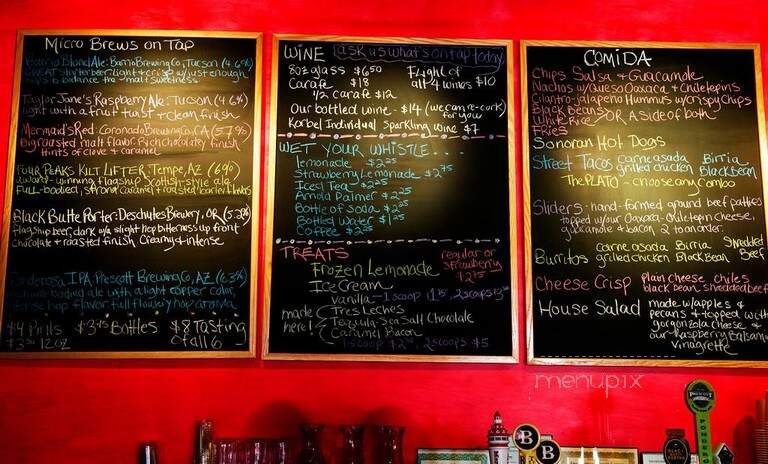 Micro Brews on Tap
Barrio Blond Ale: Barrio Brewing Co, Tucson (4.6%)
GREAT starter beer, light + crisp w/just enough
hops to balance the malt sweetness
Taylor Jane's Raspberry Ale: Tucson (4.6%)
light with a fruit twist + clean finish
Mermaid's Red: Coronado Brewing Co, CA (5.7%)
Big roasted malt flavor. Rich chocolatey finish
hints of clove + caramel
Four Peaks Kilt Lifter: Tempe, AZ (6%)
award-winning flagship Scottish-style ale
Full-bodied, strong caramel + roasted
Black Butte Porter: Deschutes Brewery, OR (5.2%)
flagship beer, dark w/a slight hop bitterness up front
chocolate + roasted finish Creamy + intense
Ponderosa IPA: Prescott Brewing Co, AZ (6.3%)
bodied ale with a light copper color
hop flavor full flowery hop aroma
$4 Pints $3.75 Bottles $8 Tasting
12oz of all 6
WINE ask us what's on tap today
8oz glass $6.50 Flight of
Carafe $18 all 4 wines $10
1/2 carafe $12
Our bottled wine - $14 (we can re-cork)
for you
Korbel Individual sparkling wine $7
WET YOUR WHISTLE...
lemonade $2.25
Strawberry Lemonade $2.75
Iced Tea $2.25
Arnold Palmer $2.25
Bottle of Soda $2.25
Bottled Water $1.25
Coffee $2.25
TREATS regular or
Frozen Lemonade strawberry
Ice Cream
vanilla - 1 scoop 2 scoops
made Tres Leches
here! Tequila Sea Salt Chocolate
Caramel Bacon
1 scoop 2 scoops $5
COMIDA
Chips Salsa + Guacamole
Nachos w/Queso Oaxaca + Chiltepins
Cilantro Jalapeno Hummus w/Crispy Chips
Black Beans
White Rice OR A side of both
Fries
Sonoran Hot Dogs
Street Tacos carne asada Birria
grilled chicken Black Bean
The PLATO - choose any combo
Sliders - hand-formed ground beef patties
topped w/our Oaxaca-chiltepin cheese,
guacamole + bacon 2 to an order
Burritos carne asada Birria Shredded
grilled chicken Black Bean Beef
Cheese Crisp plain cheese chiles
black bean shredded beef
House Salad made w/apples &
pecans + topped with
gorgonzola cheese &
our Raspberry Balsamic
Vinaigrette
menupix
B
B